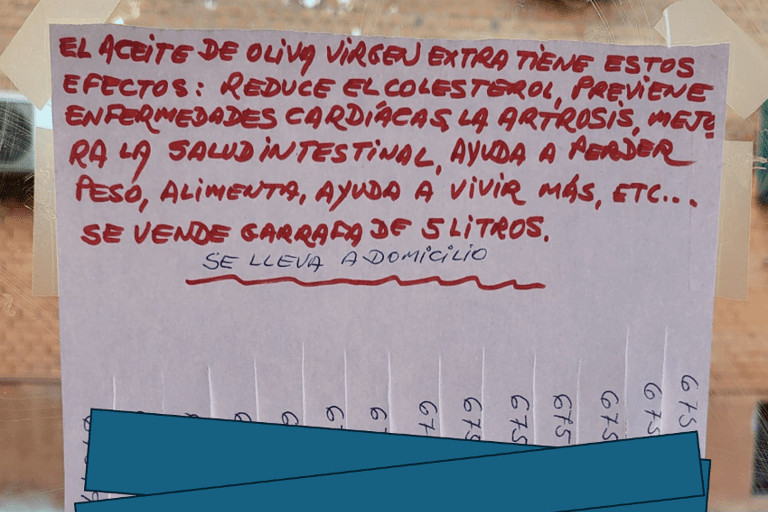 EL ACEITE DE OLIVA VIRGEN EXTRA TIENE ESTOS
EFECTOS: REDUCE EL COLESTEROL, PREVIENE
ENFERMEDADES CARDÍACAS, LA ARTROSIS, MEJO
RA LA SALUD INTESTINAL, AYUDA A PERDER
PESO, ALIMENTA, AYUDA A VIVIR MÁS, ETC...
SE VENDE GARRAFA DE 5 LITROS.
SE LLEVA A DOMICILIO
675
675
675
675
675